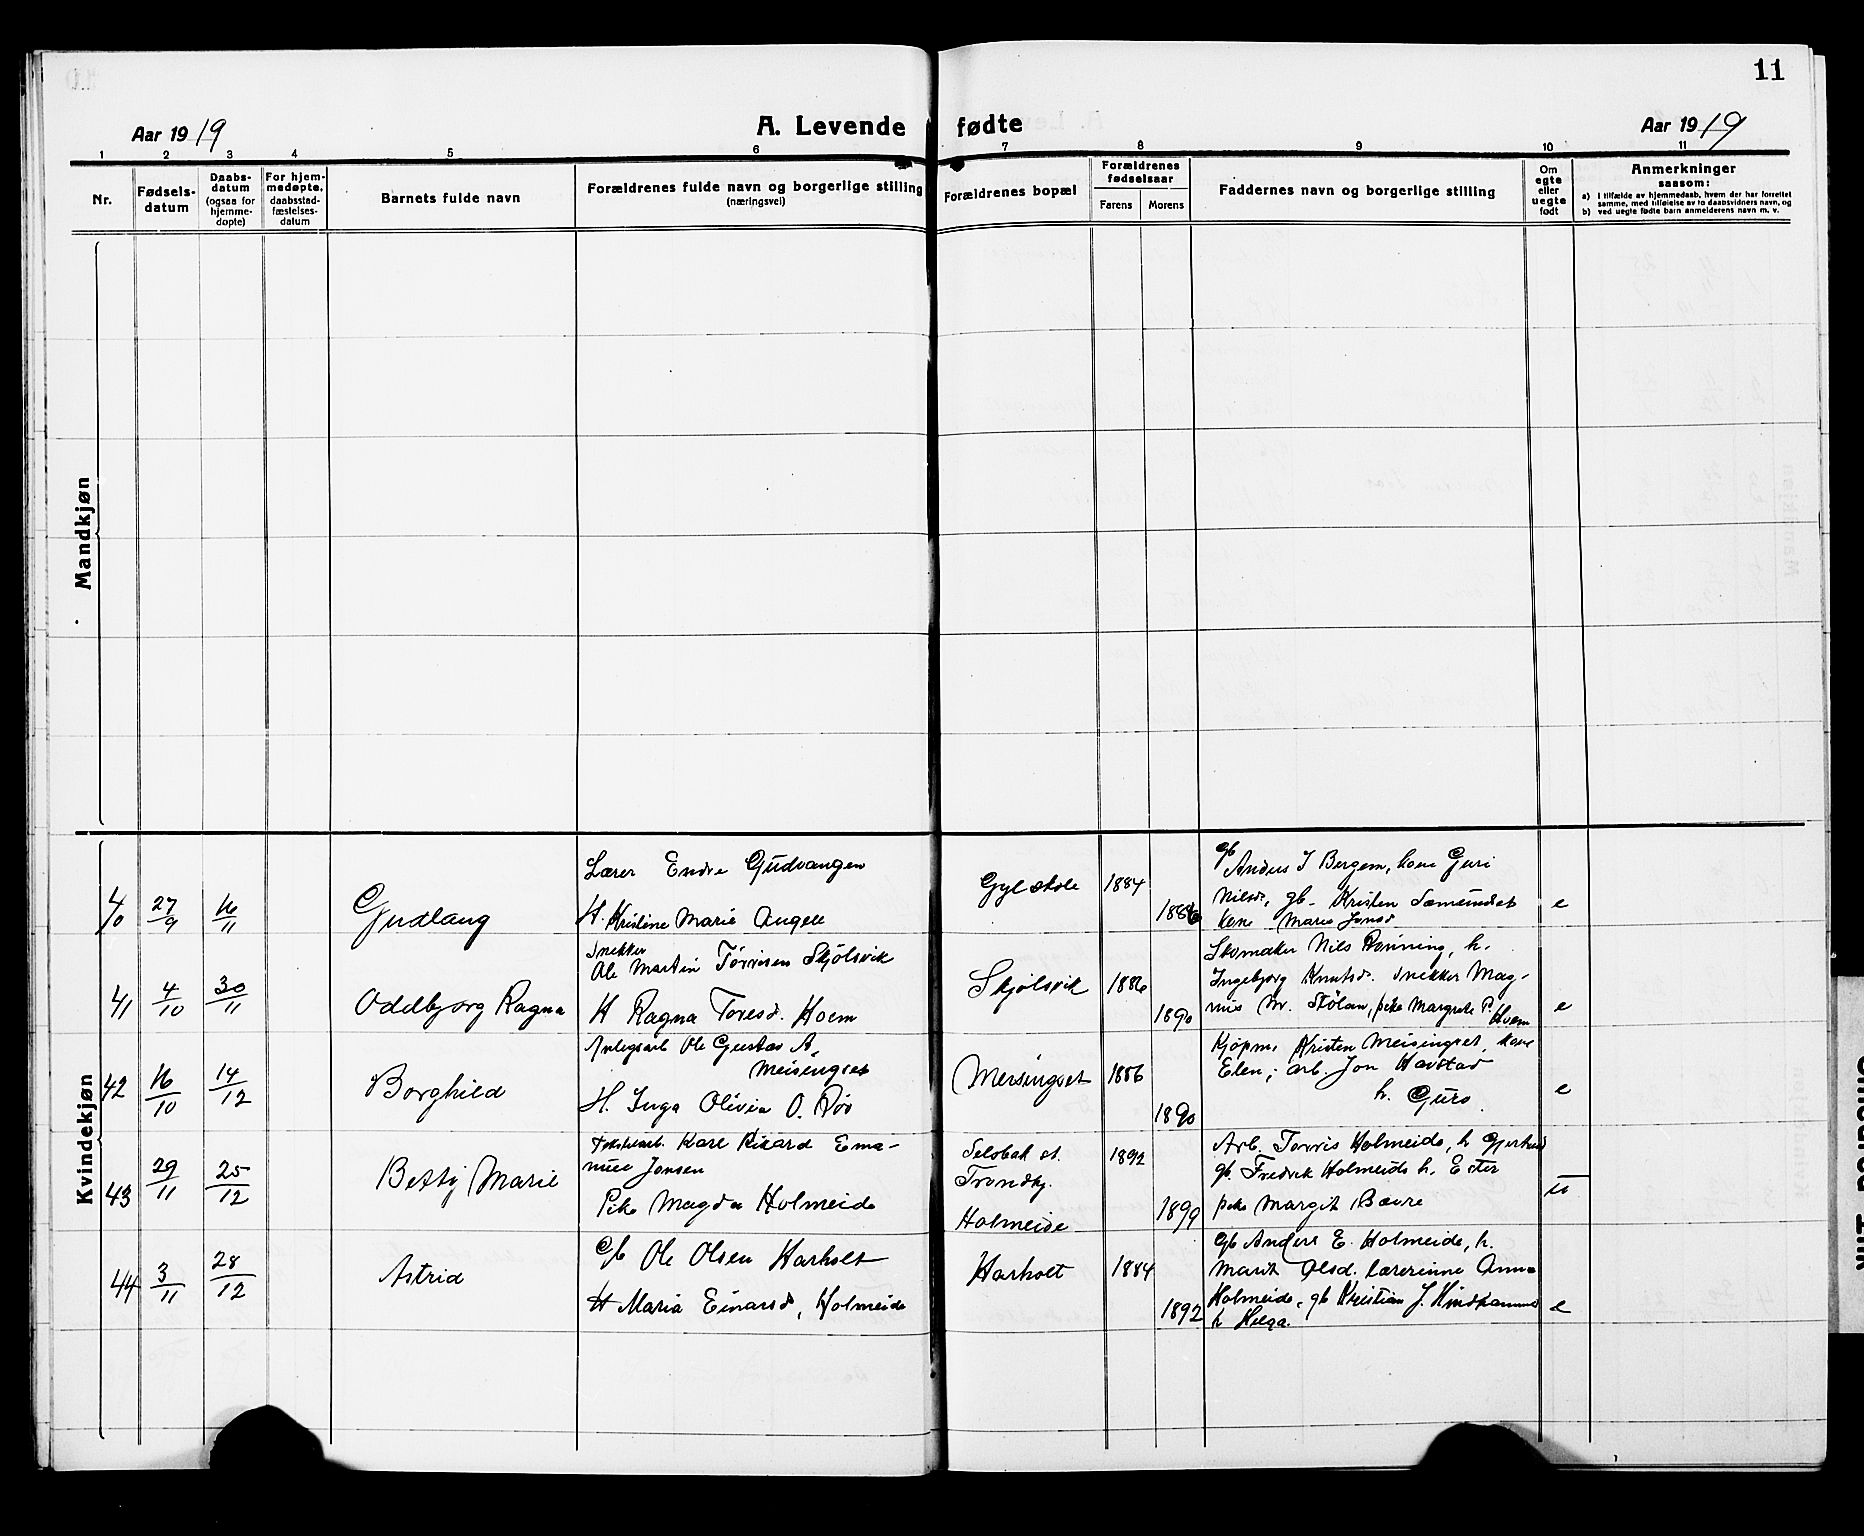 11
Aar 1919
A. Levende fødte
Aar 1919
1 2 3 4 5 6 7 8 9 10 11
Nr.
Fødsels-
datum
Daabs-
datum
(ogsaa for
hjemme-
døpte)
For hjem-
medøpte,
daabsstad-
fæstelses-
datum
Barnets fulde navn
Forældrenes fulde navn og borgerlige stilling
(næringsvei)
Forældrenes bopæl
Forældrenes
fødselsaar
Farens Morens
Faddernes navn og borgerlige stilling
Om
egte
eller
uegte
født
Anmerkninger
saasom:
a) I tilfælde av hjemmedaab, hvem der har forrettet
samme, med tilføielse av to daabsvidners navn, og
b) ved uegte fødte barn anmelderens navn m. v.
Mandkjøn
Kvindekjøn
40 27/9 16/11 Gudlaug
Lærer Endre Gudvangen
H. Kristine Marie Angell
Gyl skole 1884
1886
gb Anders J Bergem, kone Guri
Nilsd, gb. Kristen Sæmundset
kone Marie Jonsd
e
41 4/10 30/11 Oddbjørg Ragna
Snekker
Ole Martin Torrisen Skjølsvik
H Ragna Toresd. Hoem
Skjølsvik 1886
1890
Skomaker Nils Rønning, h.
Ingebjørg Knutsd. snekker Mag-
nus Stølan, pike Margrete P. Hoem
e
42 16/10 14/12 Borghild
Anlegsarb Ole Gustav A.
Meisingset
H. Inga Olivia O. Røv
Meisingset 1886
1890
Kjøpm. Kristen Meisingset, kone
Elen, arb. Jon Havstad
h. Guro
e
43 29/11 25/12 Betty Marie
Karl Rikard Ema-
nuel Jensen
Pike Magda Holmeide
Selsbak st.
Trondhj.
Holmeide
1892
1899
Arb. Torris Holmeide, h Gjertrud
gb. Fredrik Holmeide h. Ester
pike Margit Bævre
u
44 3/11 28/12 Astrid
gb Ole Olsen Harholt
H Maria Einarsd, Holmeide
Harholt 1884
1892
gb Anders E. Holmeide, h.
Marit Olsd. lærerinne Anna
Holmeide, gb Kristian J. Hindhammer
h Helga.
e